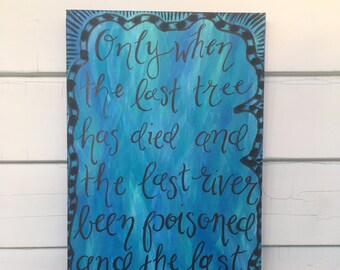 Only when
the last tree
has died and
the last river
been poisoned
and the last